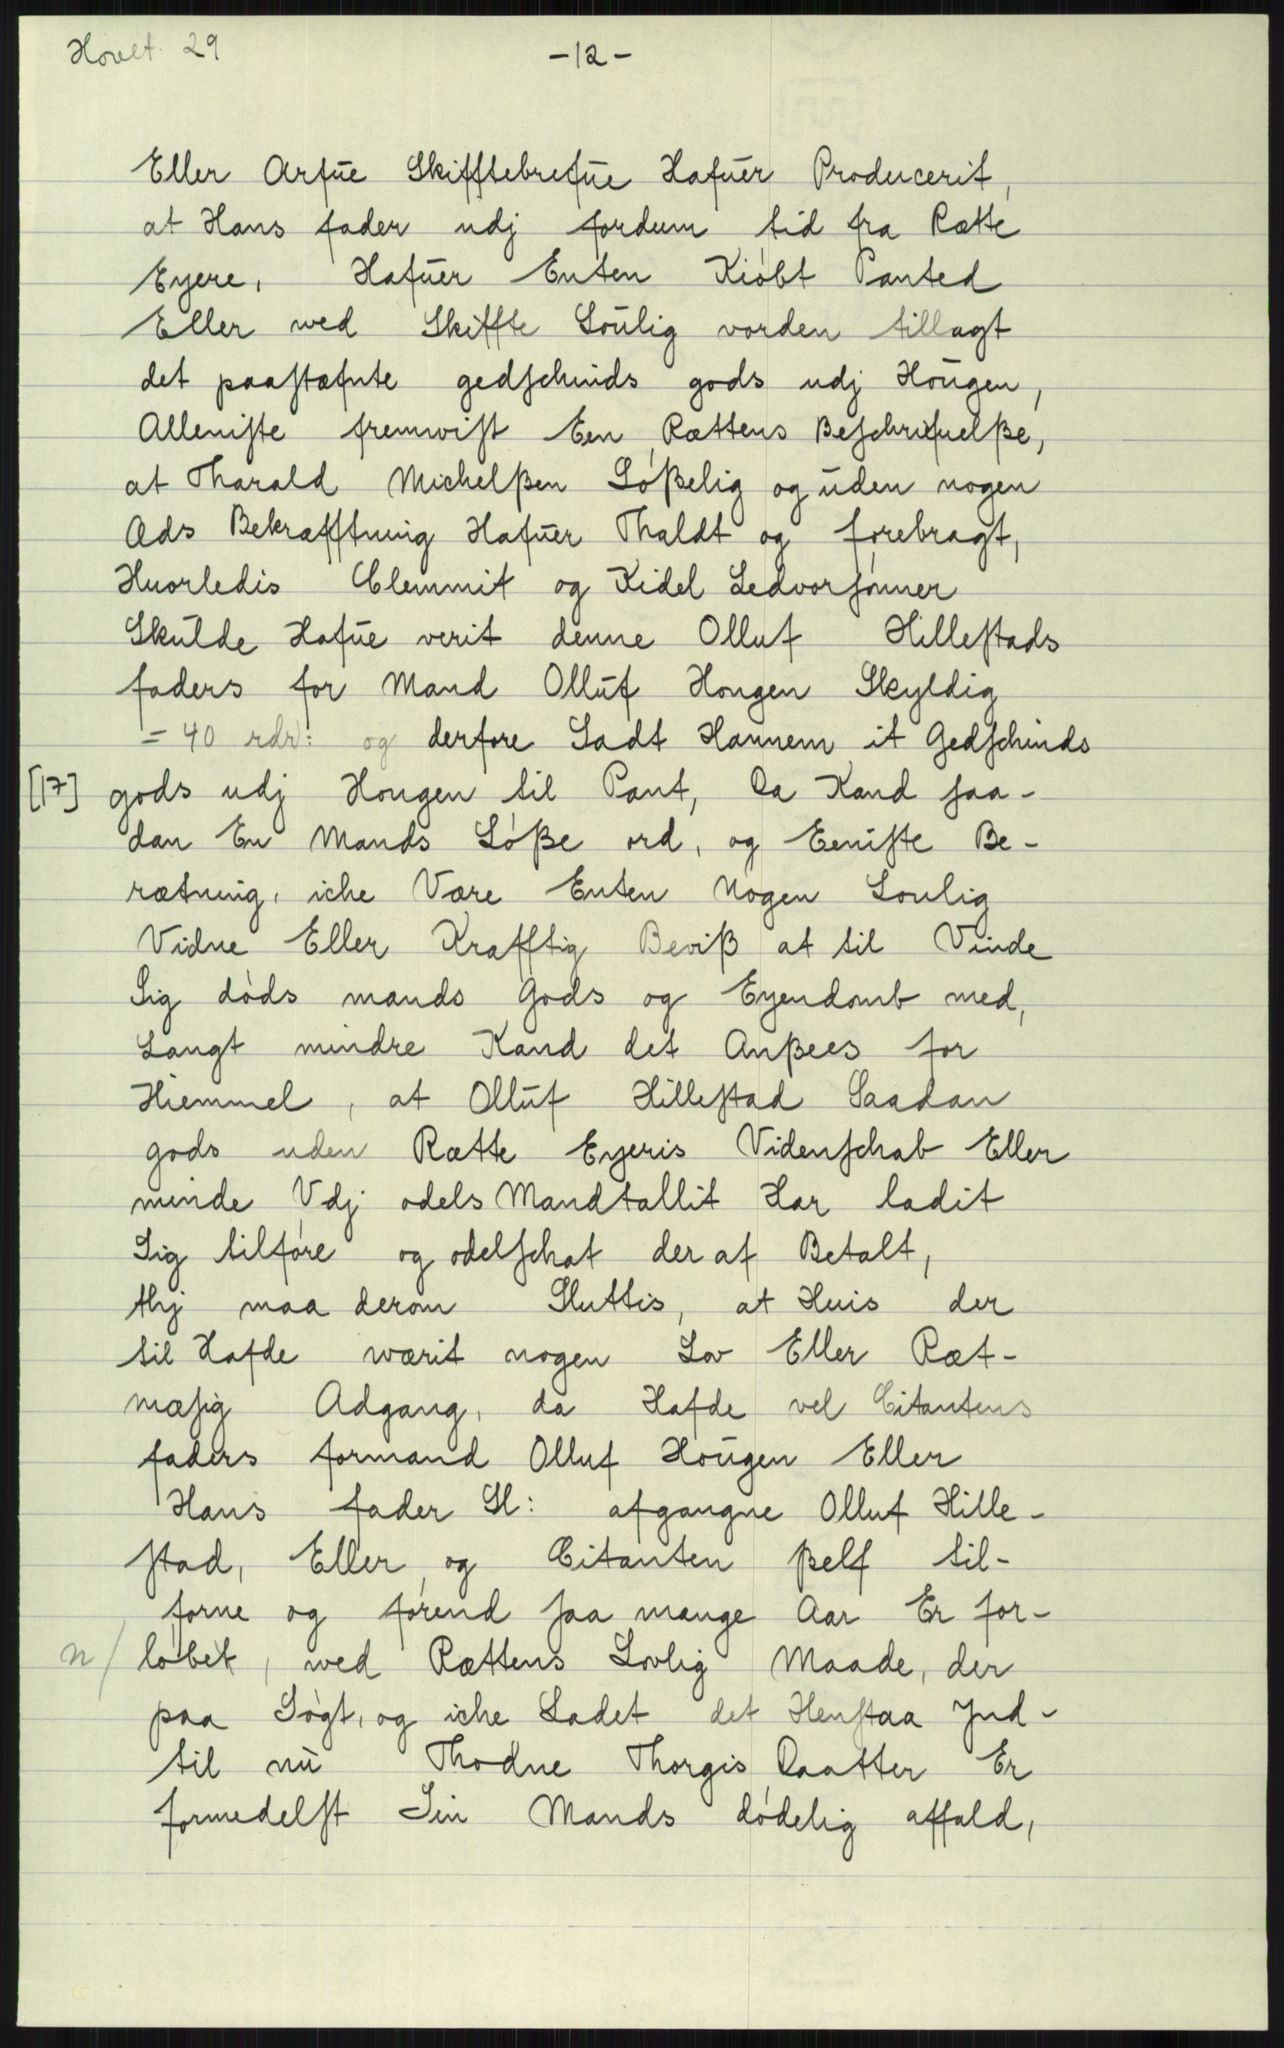 Hovet. 29
-12-
Eller Arfūe Skifftebrefūe Hafūer Producerit,
at Hans fader udj fordum tid fra Rætte
Eyere, Hafūer Enten Kiøbt Panted
Eller wed Skiffte Loūlig vorden tillagt
det paaſtæfnte gedſchinds gods udj Hoūgen,
Alleniſte fremwiſt Een Rættens Beſchrifuelße,
at Tharald Michelßen Løßelig og ūden nogen
Æds Bekræfftning Hafūer Thaldt og forebragt,
Huorledis Clemmit og Kidel Ledvorſønner
Skūlde Hafūe verit denne Olluf Hilleſtads
faders for Mand Ollūf Hougen Skyldig
= 40 rdr: og derfore Sadt Hannem it Gedſchinds
[17] gods udj Hougen til Pant, Da Kand ſaa-
dan En Mands Løße ord, og Eeniſte Be-
rætning, iche Være Enten Nogen Loulig
Vidne Eller Krafftig Beviß at til Vinde
Sig døds mands Gods og Eyendomb med,
Langt mindre Kand det Anßees for
Hiemmel, at Ollūf Hilleſtad Saadan
gods uden Rætte Eyeris Videnſchab Eller
minde Vdj odels Mandtallit Har ladit
Sig tilføre og odelſchat der af Betalt,
thj maa derom Sluttis, at Huis der
til Hafde wærit nogen Lov Eller Ræt-
mæſig Adgang, da Hafde vel Citantens
faders formand Olluf Hoūgen Eller
Hans fader Sl: afgangne Olluf Hille-
ſtad, Eller og Citanten ßelf til-
forne og førend ſaa mange Aar Er for-
n/ løbet, wed Rættens Lovlig Maade, der
paa Søgt, og iche Ladet det Henſtaa Jnd-
til nū Thodne Thorgis Daatter Er
formedelſt Sin Mands dødelig affald,